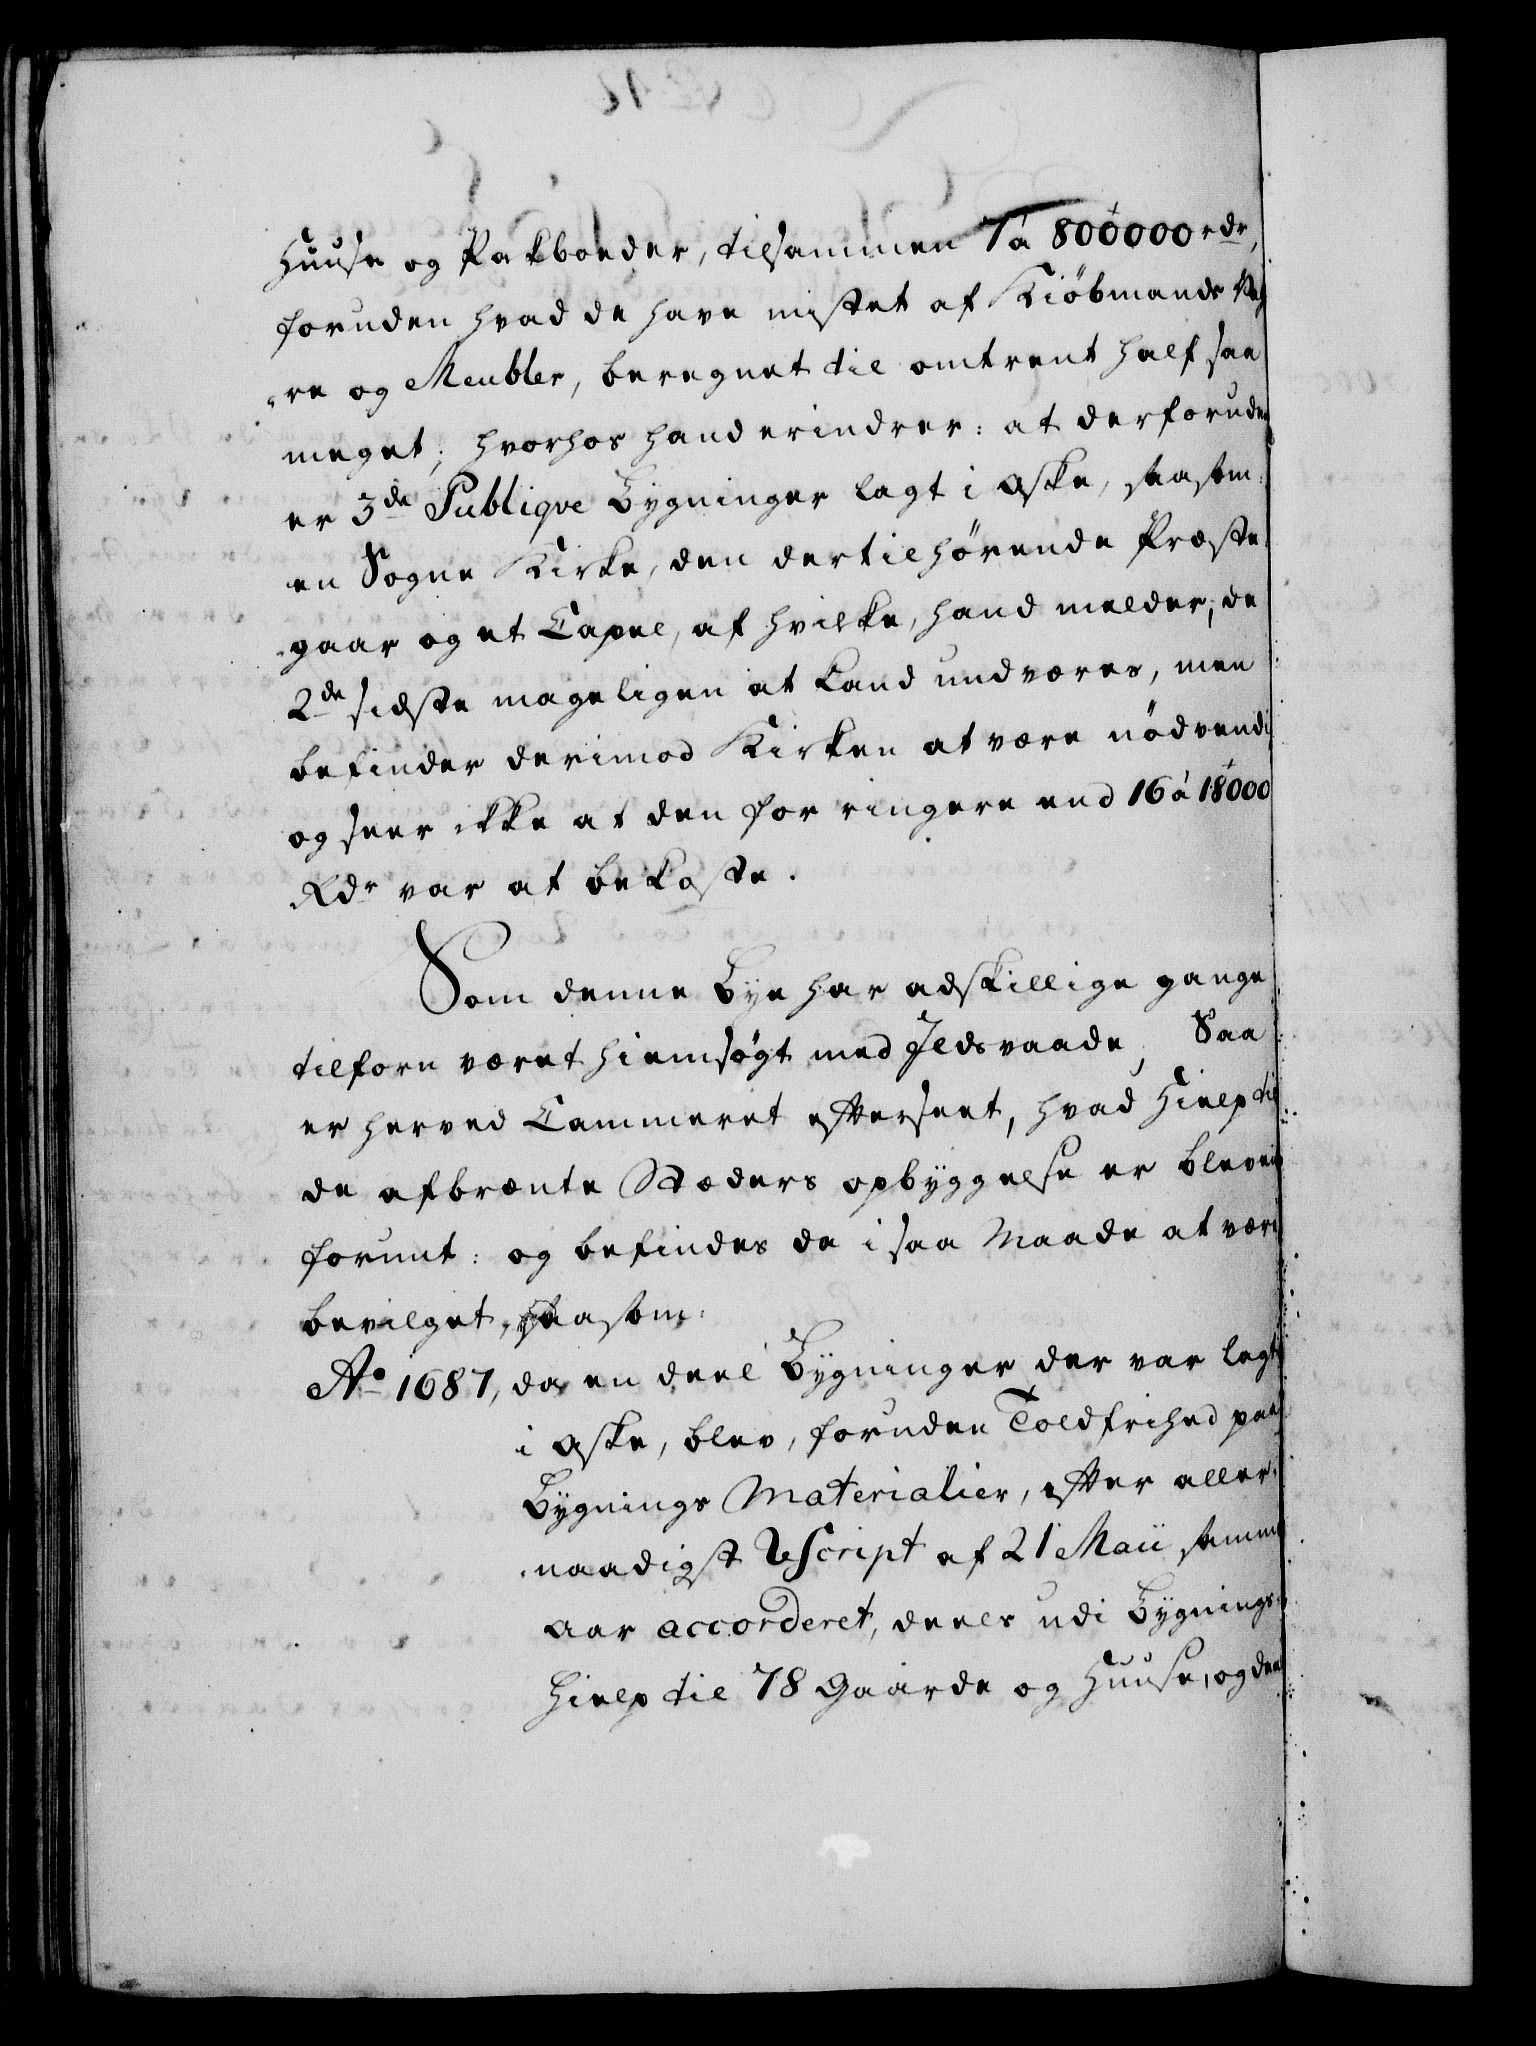 Huuse og Pakboeder, tilsammen 7 á 800000 rdr,
foruden hvad de have mistet af Kiöbmands Va¬
re og Meubler, beregnet til omtrent half saa
meget; hvorhos hand erindrer: at derforuden
er 3de Publiqve Bygninger lagt i Aske, saasom:
en Sogne Kirke, den dertil hörende Præste¬
gaar og et Capel, af hvilke, hand melder, de
2de sidste mageligen at kand undværes, men
befinder derimod Kirken at være nödvendi
og seer ikke at den for ringere end 16 á 18000
Rdr var at bekoste.
Som denne Bye har adskillige gange
tilforn været hiemsögt med Ildsvaade, Saa
er herved Cammeret efterseet, hvad Hielp til
de afbrænte Stæders opbyggelse er bleven
forunt: og befindes da i saa Maade at være
bevilget, saasom:
Ao 1687, da en deel Bygninger der var lagt
i Aske, blev, foruden Toldfrihed paa
Bygnings Materialier, efter aller¬
naadigst Rescript af 21 Maii samme
Aar accorderet, deels udi Bygnings
Hielp til 78 Gaarde og Huuse, og deels